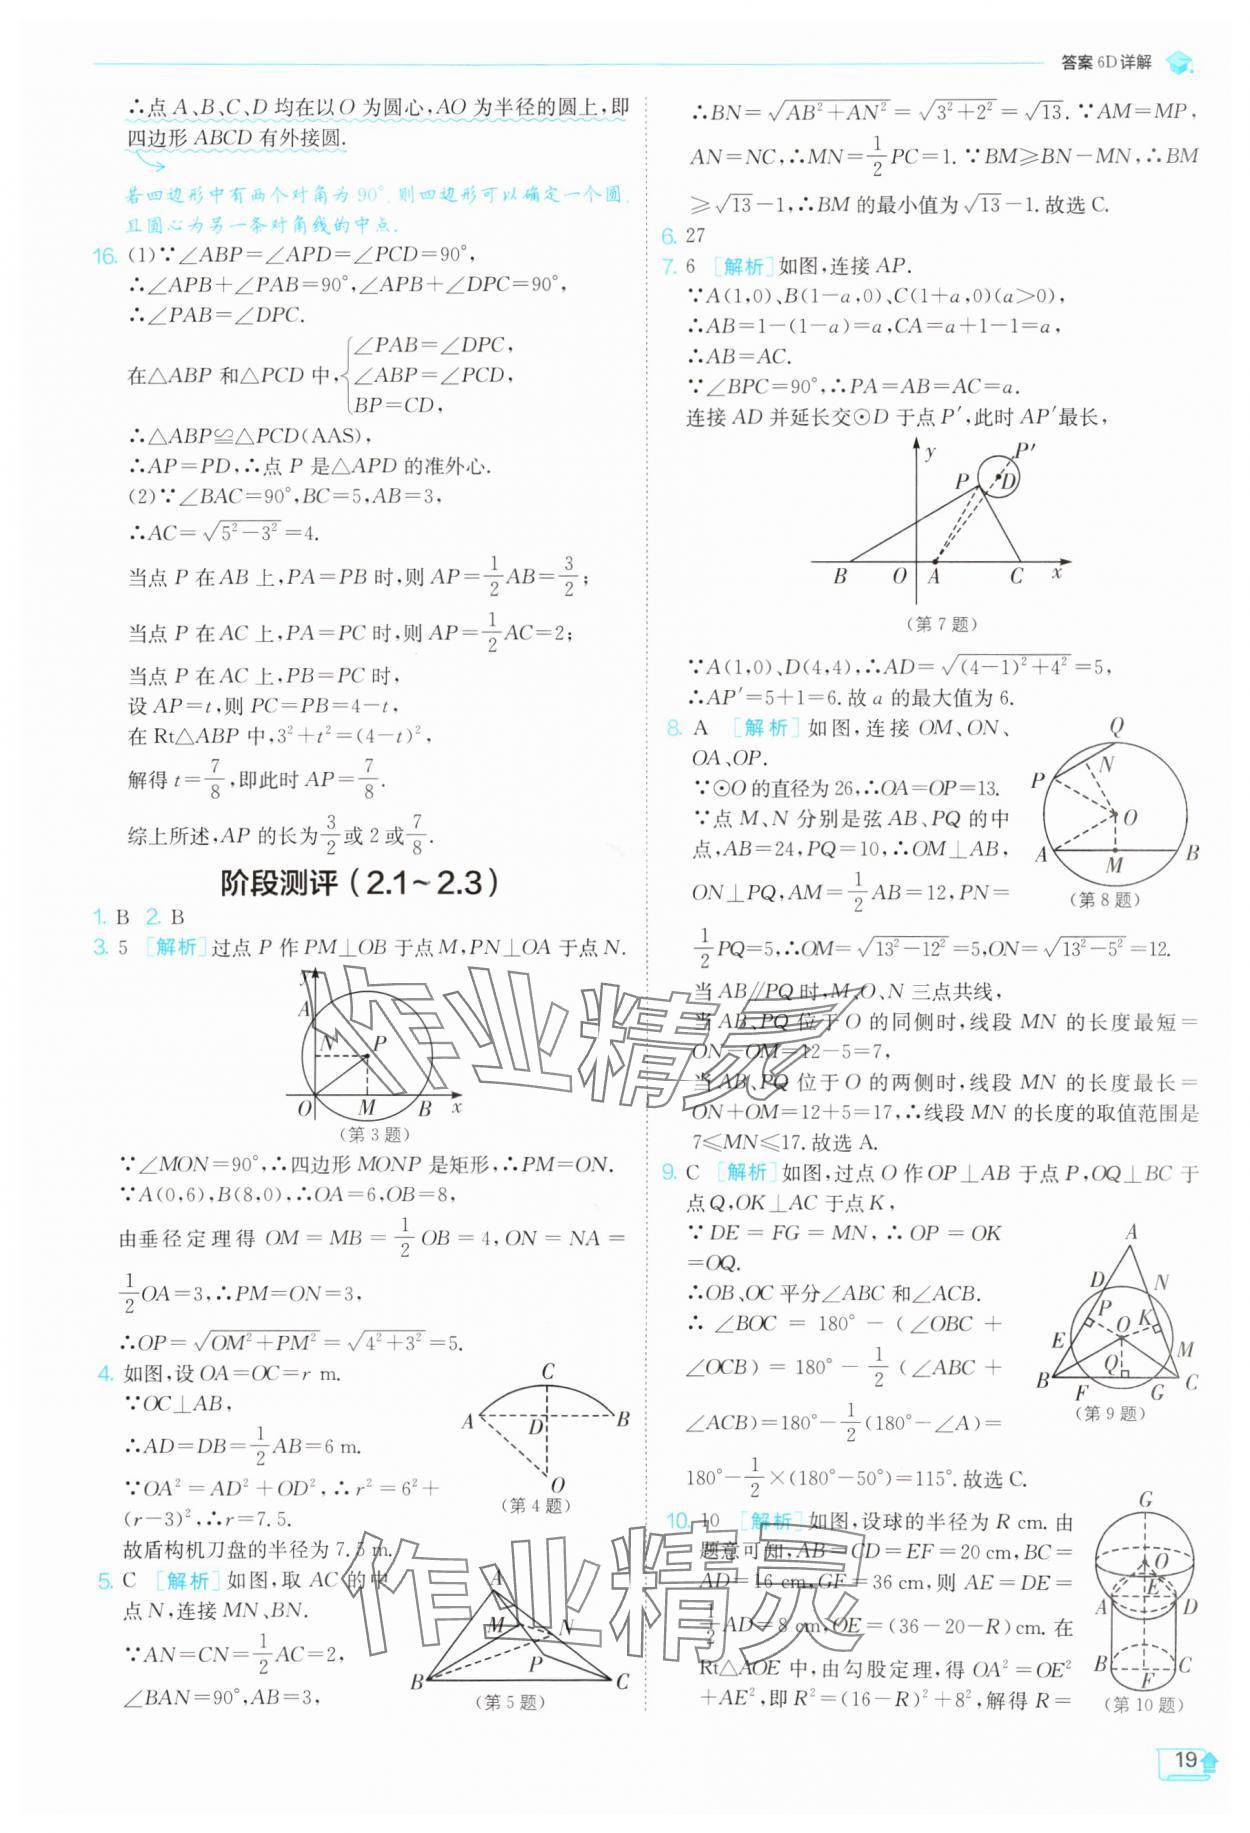 答案 6D详解
∴点 A、B、C、D 均在以 O 为圆心,AO 为半径的圆上,即
四边形 ABCD 有外接圆.
若四边形中有两个对角为 90°,则四边形可以确定一个圆,
且圆心为另一条对角线的中点.
16. (1)∵∠ABP=∠APD=∠PCD=90°,
∴∠APB+∠PAB=90°,∠APB+∠DPC=90°,
∴∠PAB=∠DPC.
在△ABP 和△PCD 中,{∠PAB=∠DPC,
∠ABP=∠PCD,
BP=CD,
∴△ABP≌△PCD(AAS),
∴AP=PD,∴点 P 是△APD 的准外心.
(2)∵∠BAC=90°,BC=5,AB=3,
∴AC=√(5²-3²)=4.
当点 P 在 AB 上,PA=PB 时,则 AP=1/2AB=3/2;
当点 P 在 AC 上,PA=PC 时,则 AP=1/2AC=2;
当点 P 在 AC 上,PB=PC 时,
设 AP=t,则 PC=PB=4-t,
在 Rt△ABP 中,3²+t²=(4-t)²,
解得 t=7/8,即此时 AP=7/8.
综上所述,AP 的长为3/2或 2 或7/8.
阶段测评(2.1~2.3)
1. B 2. B
3. 5 [解析]过点 P 作 PM⊥OB 于点 M,PN⊥OA 于点 N.
y
A
N
P
O
M
B
x
(第 3 题)
∵∠MON=90°,∴四边形 MONP 是矩形,∴PM=ON.
∵A(0,6),B(8,0),∴OA=6,OB=8,
由垂径定理得 OM=MB=1/2OB=4,ON=NA=
1/2OA=3,∴PM=ON=3,
∴OP=√(OM²+PM²)=√(4²+3²)=5.
4. 如图,设 OA=OC=r m.
∵OC⊥AB,
∴AD=DB=1/2AB=6 m.
∵OA²=AD²+OD²,∴r²=6²+
(r-3)²,∴r=7.5.
故盾构机刀盘的半径为 7.5 m.
C
A
D
B
O
(第 4 题)
5. C [解析]如图,取 AC 的中
点 N,连接 MN、BN.
∵AN=CN=1/2AC=2,
∠BAN=90°,AB=3,
A
M
N
P
B
C
(第 5 题)
∴BN=√(AB²+AN²)=√(3²+2²)=√13.∵AM=MP,
AN=NC,∴MN=1/2PC=1.∵BM≥BN-MN,∴BM
≥√13-1,∴BM 的最小值为√13-1.故选 C.
6. 27
7. 6 [解析]如图,连接 AP.
∵A(1,0)、B(1-a,0)、C(1+a,0)(a>0),
∴AB=1-(1-a)=a,CA=a+1-1=a,
∴AB=AC.
∵∠BPC=90°,∴PA=AB=AC=a.
连接 AD 并延长交⊙D 于点 P′,此时 AP′最长,
y
P′
P
D
B
O
A
C
x
(第 7 题)
∵A(1,0)、D(4,4),∴AD=√((4-1)²+4²)=5,
∴AP′=5+1=6.故 a 的最大值为 6.
8. A [解析]如图,连接 OM、ON、
OA、OP.
∵⊙O 的直径为 26,∴OA=OP=13.
∵点 M、N 分别是弦 AB、PQ 的中
点,AB=24,PQ=10,∴OM⊥AB,
ON⊥PQ,AM=1/2AB=12,PN=
1/2PQ=5,∴OM=√(13²-12²)=5,ON=√(13²-5²)=12.
Q
N
P
O
A
M
B
(第 8 题)
当 AB∥PQ 时,M、O、N 三点共线,
当 AB、PQ 位于 O 的同侧时,线段 MN 的长度最短=
ON-OM=12-5=7,
当 AB、PQ 位于 O 的两侧时,线段 MN 的长度最长=
ON+OM=12+5=17,∴线段 MN 的长度的取值范围是
7≤MN≤17.故选 A.
9. C [解析]如图,过点 O 作 OP⊥AB 于点 P,OQ⊥BC 于
点 Q,OK⊥AC 于点 K,
∵DE=FG=MN,∴OP=OK
=OQ.
∴OB、OC 平分∠ABC 和∠ACB.
∴∠BOC=180°-(∠OBC+
∠OCB)=180°-1/2(∠ABC+
∠ACB)=180°-1/2(180°-∠A)=
180°-1/2×(180°-50°)=115°.故选 C.
A
D
N
P
O
K
E
M
Q
B
F
G
C
(第 9 题)
10. 10 [解析]如图,设球的半径为 R cm. 由
题意可知,AB=CD=EF=20 cm,BC=
AD=16 cm,GF=36 cm,则 AE=DE=
1/2AD=8 cm,OE=(36-20-R)cm. 在
Rt△AOE 中,由勾股定理,得 OA²=OE²
+AE²,即 R²=(16-R)²+8²,解得 R=
G
O
E
A
D
B
F
C
(第 10 题)
作业精灵
作业精灵
19